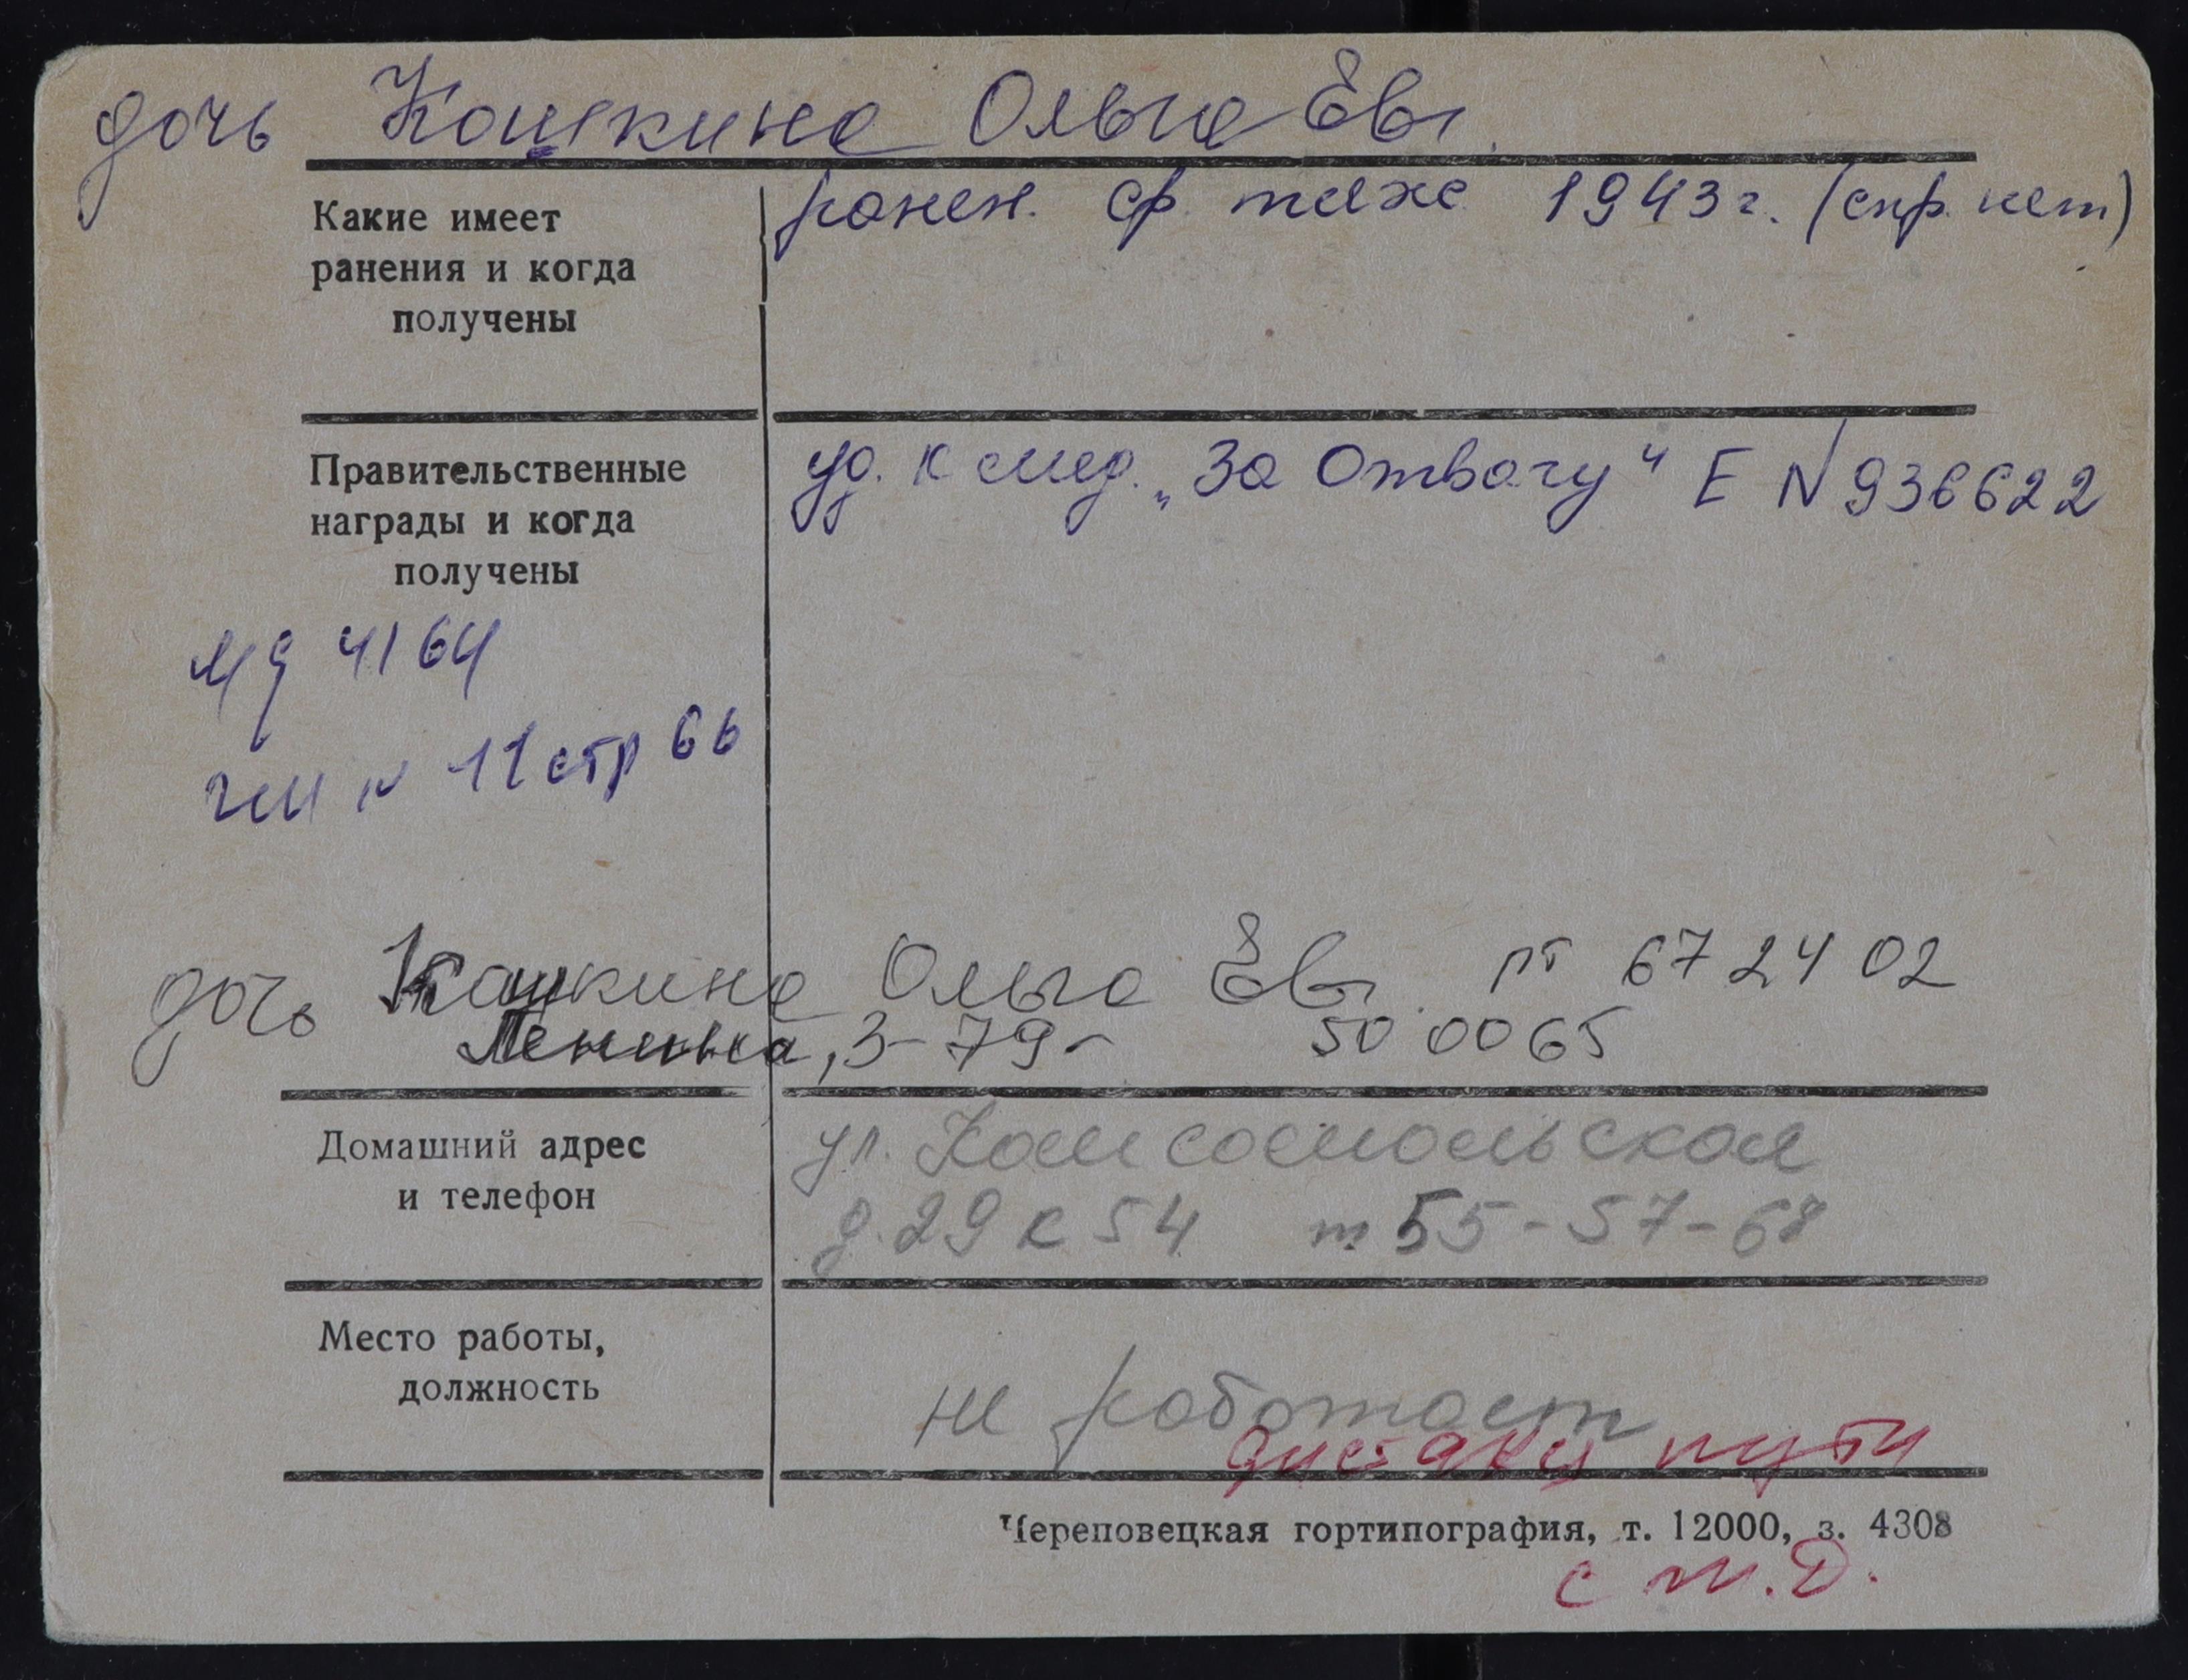 дочь Кошкина Ольга Евг.
Какие имеет
ранения и когда
получены
ранен. ср. тяже 1943 г. (спр. нет)
Правительственные
награды и когда
получены
уд. к мед. „За Отвагу" Е N 936622
МД 4164
N 11 стр 66
дочь Кошкина Ольга Евг. рт 67 24 02
Ленина, 3-79- 50 00 65
Домашний адрес
и телефон
ул. Комсомольская
д. 29 к 54 т 55-57-68
Место работы,
должность
не работает
дистанц пути
Череповецкая гортипография, т. 12000, з. 4308